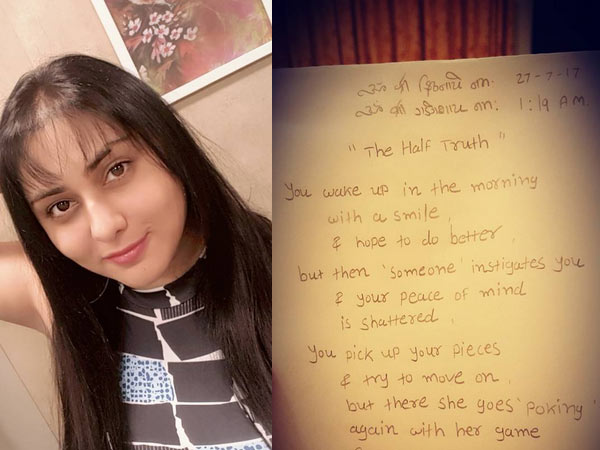 27-7-17
1:19 A.M.
" The Half Truth "
You wake up in the morning
with a smile,
& hope to do better,
but then 'someone' instigates you
& your peace of mind
is shattered,
You pick up your pieces
& try to move on,
but there she goes 'poking'
again with her game